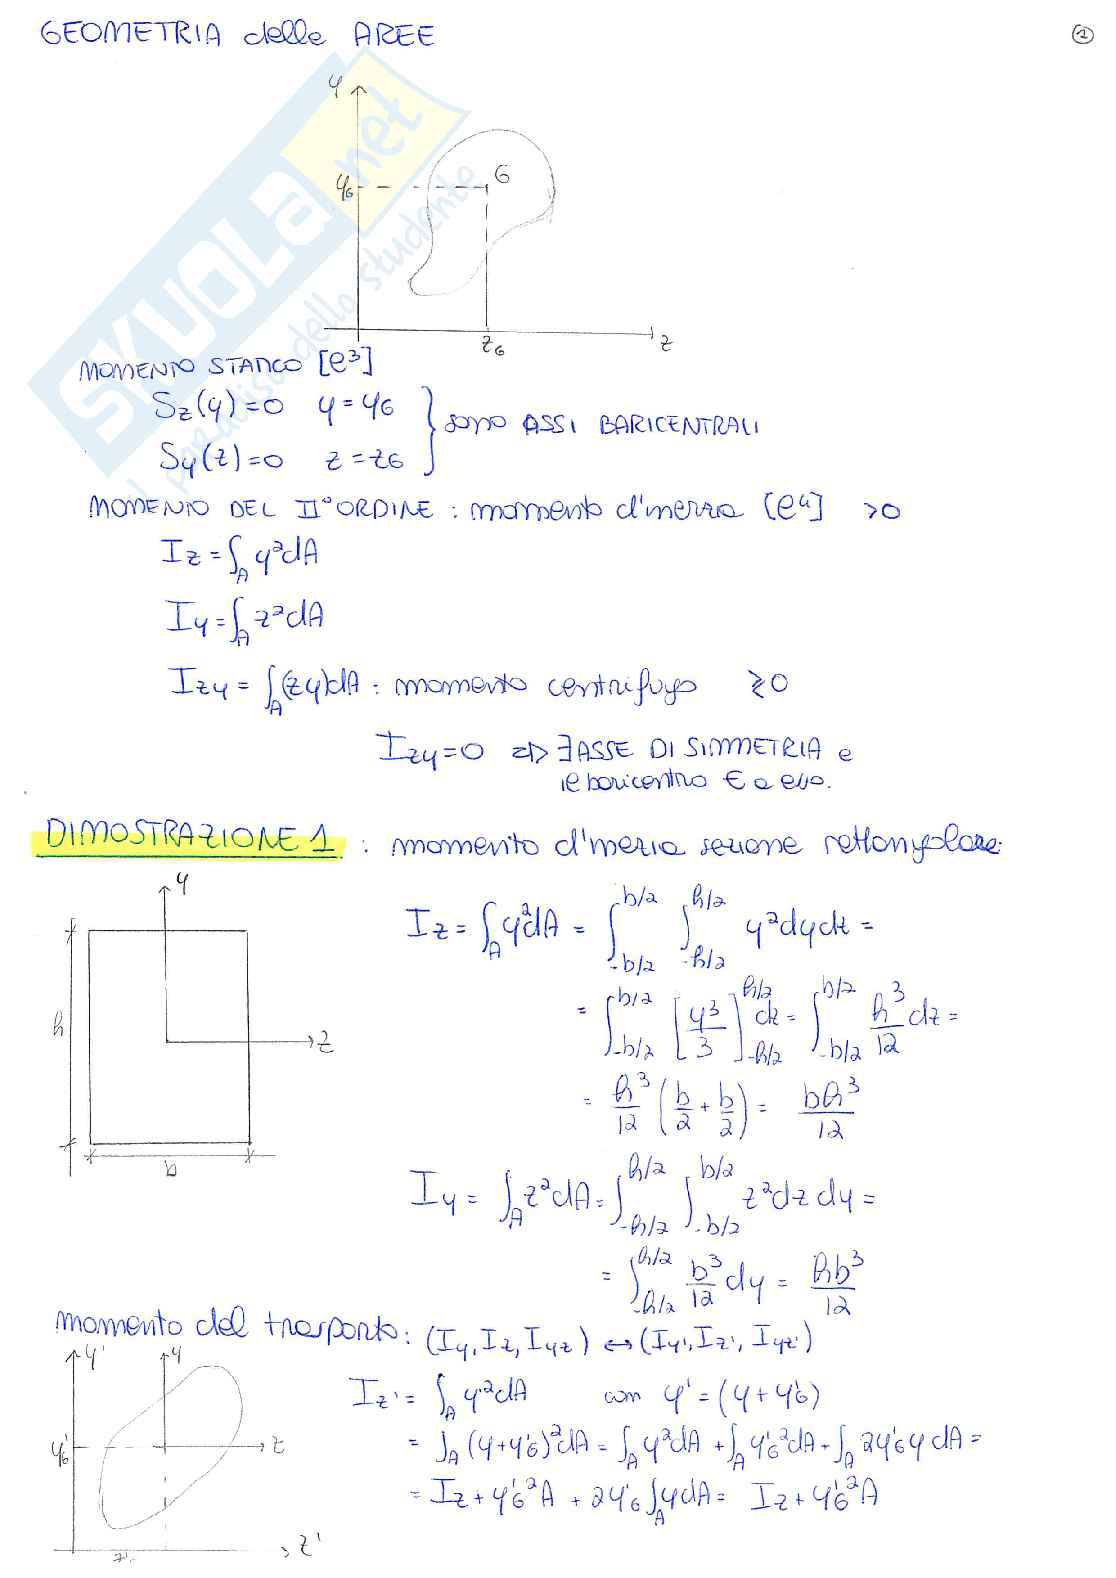 GEOMETRIA delle AREE
1
y
y_G
G
z_G
z
SKUOLA.net
il paradiso dello studente
MOMENTO STATICO [l³]
S_z(y)=0 y=y_G
S_y(z)=0 z=z_G
} sono ASSI BARICENTRALI
MOMENTO DEL II° ORDINE : momento d'inerzia [l⁴] >0
I_z = ∫_A y²dA
I_y = ∫_A z²dA
I_zy = ∫_A (zy)dA : momento centrifugo ≷0
I_zy=0 ⇔ ∃ ASSE DI SIMMETRIA e
il baricentro ∈ a esso.
DIMOSTRAZIONE 1 : momento d'inerzia sezione rettangolare:
y
h
z
b
I_z = ∫_A y²dA = ∫_{-b/2}^{b/2} ∫_{-h/2}^{h/2} y²dydz =
= ∫_{-b/2}^{b/2} [y³/3]_{-h/2}^{h/2} dz = ∫_{-b/2}^{b/2} h³/12 dz =
= h³/12 (b/2 + b/2) = bh³/12
I_y = ∫_A z²dA = ∫_{-h/2}^{h/2} ∫_{-b/2}^{b/2} z²dz dy =
= ∫_{-h/2}^{h/2} b³/12 dy = hb³/12
momento del trasporto: (I_y, I_z, I_yz) ↔ (I_y', I_z', I_yz')
y'
y
y'_G
z
z'
I_z' = ∫_A y'²dA con y' = (y + y'_G)
= ∫_A (y+y'_G)²dA = ∫_A y²dA + ∫_A y'_G²dA + ∫_A 2y'_G y dA =
= I_z + y'_G²A + 2y'_G ∫_A y dA = I_z + y'_G²A